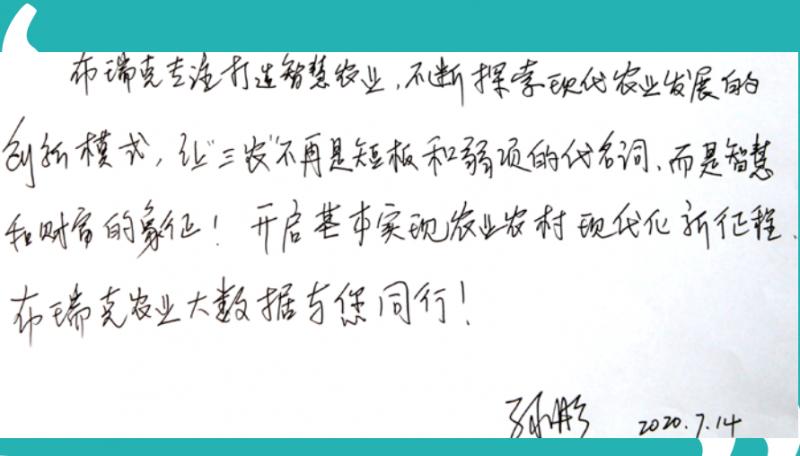 布瑞克专注打造智慧农业，不断探索现代农业发展的
创新模式，让“三农”不再是短板和弱项的代名词，而是智慧
和财富的象征！开启基本实现农业农村现代化新征程，
布瑞克农业大数据与您同行！
孙彤 2020.7.14